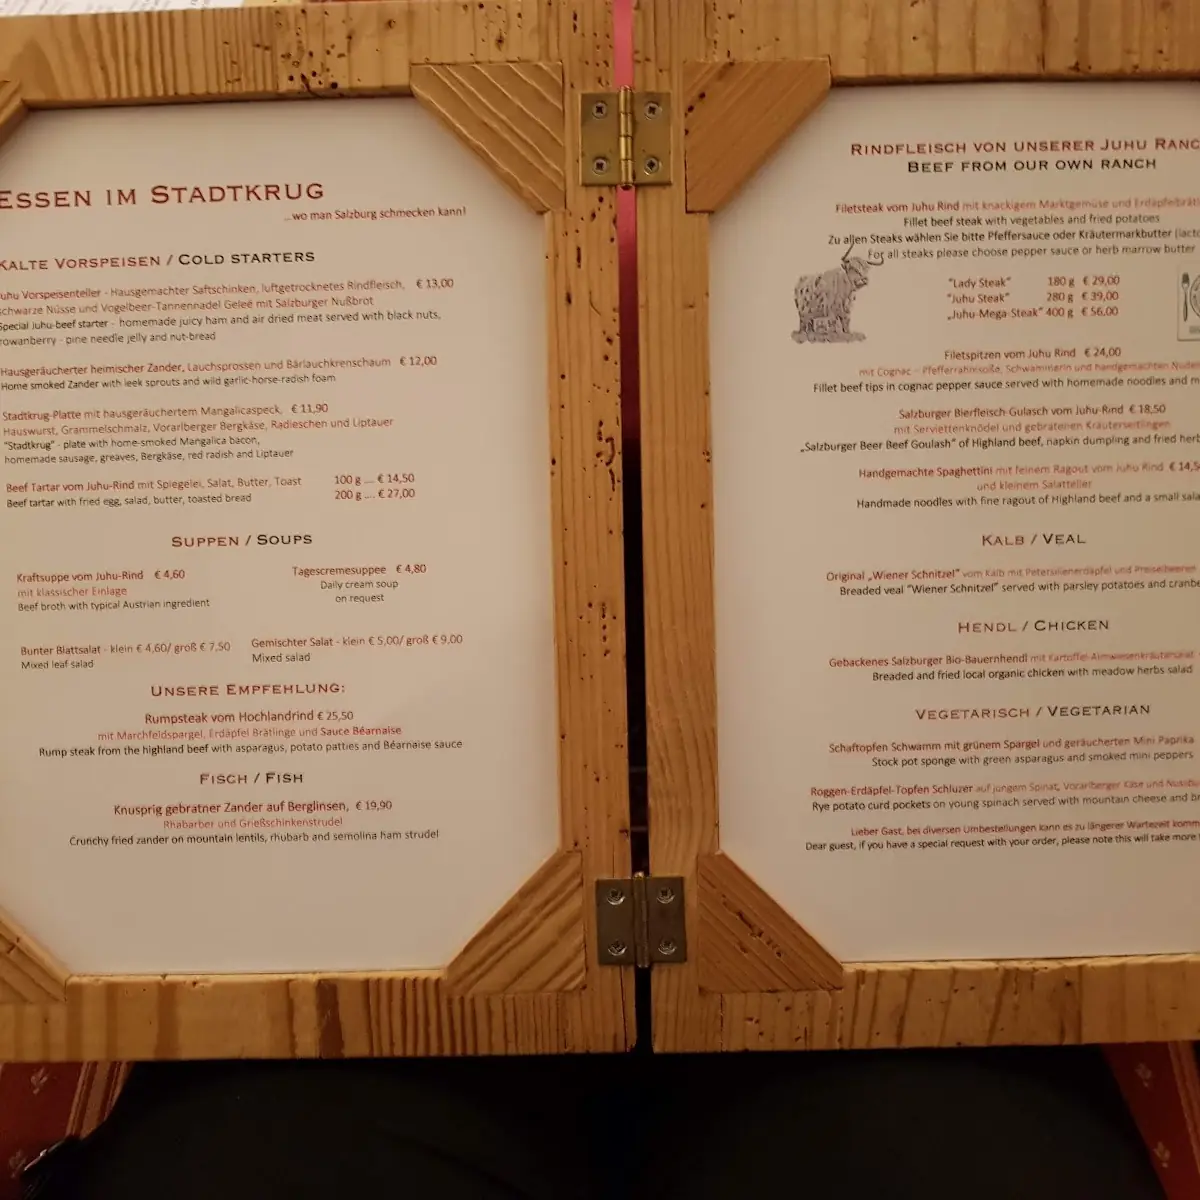 ESSEN IM STADTKRUG
...wo man Salzburg schmecken kann!
KALTE VORSPEISEN / COLD STARTERS
uhu Vorspeisenteller - Hausgemachter Saftschinken, luftgetrocknetes Rindfleisch, € 13,00
schwarze Nüsse und Vogelbeer-Tannennadel Gelee mit Salzburger Nußbrot
Special Juhu-beef starter - homemade juicy ham and air dried meat served with black nuts,
rowanberry - pine needle jelly and nut-bread
Hausgeräucherter heimischer Zander, Lauchsprossen und Bärlauchkrenschaum € 12,00
Home smoked Zander with leek sprouts and wild garlic-horse-radish foam
Stadtkrug-Platte mit hausgeräuchertem Mangalicaspeck, € 11,90
Hauswurst, Grammelschmalz, Vorarlberger Bergkäse, Radieschen und Liptauer
"Stadtkrug" - plate with home-smoked Mangalica bacon,
homemade sausage, greaves, Bergkäse, red radish and Liptauer
Beef Tartar vom Juhu-Rind mit Spiegelei, Salat, Butter, Toast 100 g .... € 14,50
Beef tartar with fried egg, salad, butter, toasted bread 200 g .... € 27,00
SUPPEN / SOUPS
Kraftsuppe vom Juhu-Rind € 4,60
mit klassischer Einlage
Beef broth with typical Austrian ingredient
Tagescremesuppee € 4,80
Daily cream soup
on request
Bunter Blattsalat - klein € 4,60/ groß € 7,50
Mixed leaf salad
Gemischter Salat - klein € 5,00/ groß € 9,00
Mixed salad
UNSERE EMPFEHLUNG:
Rumpsteak vom Hochlandrind € 25,50
mit Marchfeldspargel, Erdäpfel Brätlinge und Sauce Béarnaise
Rump steak from the highland beef with asparagus, potato patties and Béarnaise sauce
FISCH / FISH
Knusprig gebratner Zander auf Berglinsen, € 19,90
Rhabarber und Grießschinkenstrudel
Crunchy fried zander on mountain lentils, rhubarb and semolina ham strudel
RINDFLEISCH VON UNSERER JUHU RANC
BEEF FROM OUR OWN RANCH
Filetsteak vom Juhu Rind mit knackigem Marktgemüse und Erdäpfelbrätl
Fillet beef steak with vegetables and fried potatoes
Zu allen Steaks wählen Sie bitte Pfeffersauce oder Kräutermarkbutter (lacto
For all steaks please choose pepper sauce or herb marrow butter
"Lady Steak" 180 g € 29,00
"Juhu Steak" 280 g € 39,00
„Juhu-Mega-Steak" 400 g € 56,00
Filetspitzen vom Juhu Rind € 24,00
mit Cognac – Pfefferrahmsoße, Schwammerln und handgemachten Nudel
Fillet beef tips in cognac pepper sauce served with homemade noodles and m
Salzburger Bierfleisch-Gulasch vom Juhu-Rind € 18,50
mit Serviettenknödel und gebratenen Kräuterseitlingen
„Salzburger Beer Beef Goulash" of Highland beef, napkin dumpling and fried herb
Handgemachte Spaghettini mit feinem Ragout vom Juhu Rind € 14,5
und kleinem Salatteller
Handmade noodles with fine ragout of Highland beef and a small sala
KALB / VEAL
Original „Wiener Schnitzel" vom Kalb mit Petersilienerdäpfel und Preiselbeeren
Breaded veal "Wiener Schnitzel" served with parsley potatoes and cranbe
HENDL / CHICKEN
Gebackenes Salzburger Bio-Bauernhendl mit Kartoffel-Almwiesenkräutersalat
Breaded and fried local organic chicken with meadow herbs salad
VEGETARISCH / VEGETARIAN
Schaftopfen Schwamm mit grünem Spargel und geräucherten Mini Paprika
Stock pot sponge with green asparagus and smoked mini peppers
Roggen-Erdäpfel-Topfen Schlutzer auf jungem Spinat, Vorarlberger Käse und Nussbu
Rye potato curd pockets on young spinach served with mountain cheese and br
Lieber Gast, bei diversen Umbestellungen kann es zu längerer Wartezeit komm
Dear guest, if you have a special request with your order, please note this will take more